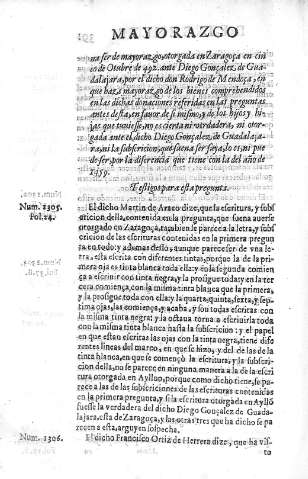 MAYORAZGO
na ser de mayorazgo, otorgada en Zaragoça en cin
co de Otubre de 492. ante Diego Gonçalez, de Gua-
dalajara, por el dicho don Rodrigo de Mendoça, en
que haze mayorazgo de los bienes comprehendidos
en las dichas donaciones referidas en las preguntas
antes desta, en favor de si mismo, y de los hijos y hi-
jas que tuuiesse, no es cierta ni verdadera, ni otor-
gada ante el dicho Diego Gonçalez, de Guadalaja-
ra, ni la subscricion, que suena ser suya, lo es, ni pue
de ser por la diferencia que tiene con la del año de
1459.
Testigos para esta pregunta.
Num. 1305.
Fol. 14.
El dicho Martin de Araco dize, que la escritura, y subs
cricion della, contenida en la pregunta, que suena auerse
otorgado en Zaragoça, tambien le parece la letra, y subs
criciones de las escrituras contenidas en la primera pregun
ta en todo: y ademas desto, aunque parece ser de vna le-
tra, esta escrita con diferentes tintas, porque la de la pri-
mera oja es tinta blanca toda ella: y en la segunda començ
a a escriuir con tinta negra, y la prosigue toda: y en la ter
cera començo, con la misma tinta blanca que la primera,
y la prosigue toda ella: y la quarta, quinta, sexta, y sep-
tima ojas, las començò, y acaba, y son todas escritas con
la misma tinta negra: y la octaua torna a escriuirla toda
con la misma tinta blanca hasta la subscricion: y el papel
en que estan escritas las ojas con la tinta negra, tiene dife
rentes lineas del marco, en que se hizo, y del de las de la
tinta blanca, en que se començò la escritura, y la subscri-
cion della, no se parece en ninguna manera a la de la escri
tura otorgada en Ayllon, porque como dicho tiene, se pa
rece a las de las subscriciones de las escrituras contenidas
en la primera pregunta, y si la escritura otorgada en Ayllõ
fuesse la verdadera del dicho Diego Gonçalez de Guada-
lajara, esta de Zaragoça, y las otras tres que dicho ha se pa
recen a esta, arguyen sospecha.
Num. 1306.
El dicho Francisco Ortiz de Herrera dize, que ha vis-
to